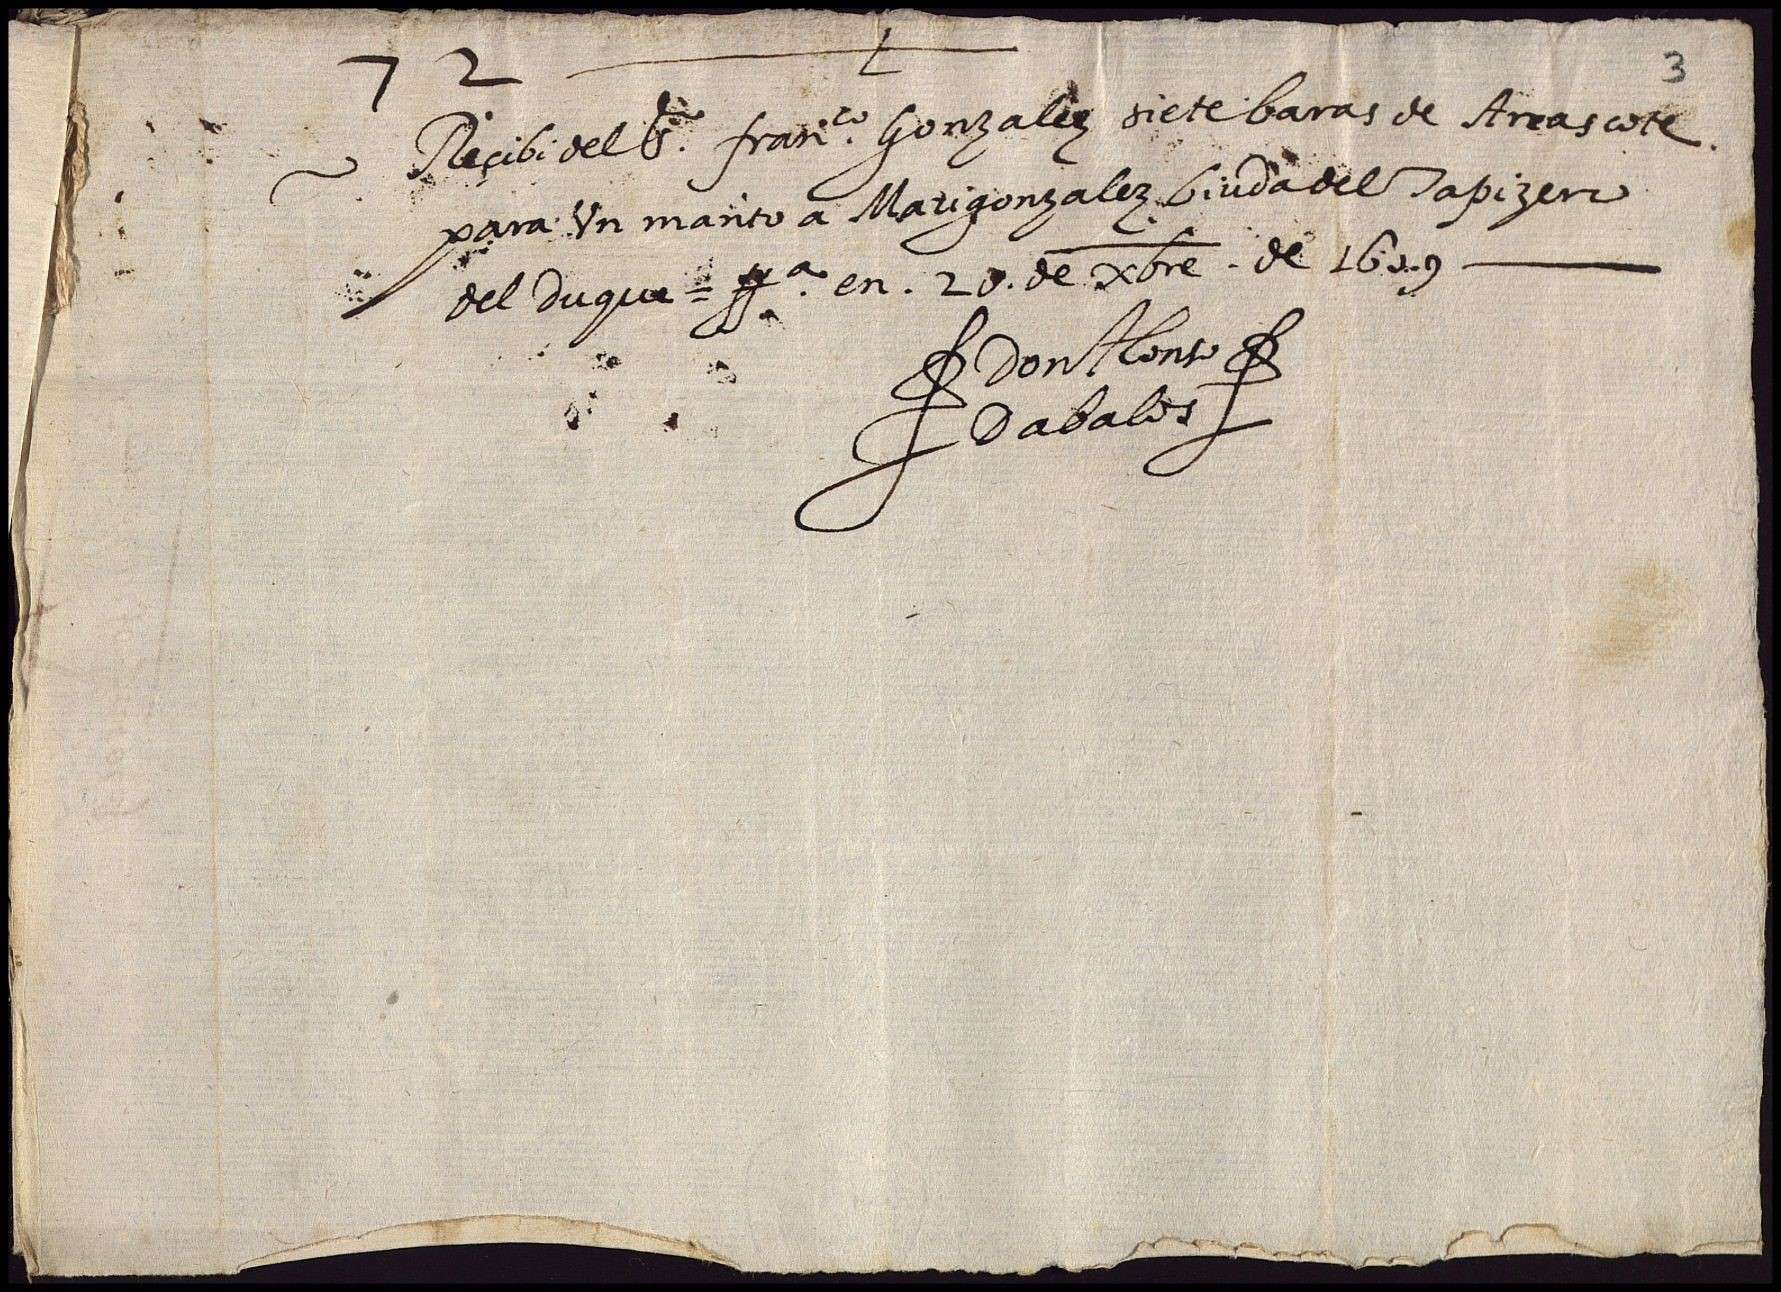 72
3
Reçibi del S.r fran.co Gonzalez siete baras de Areascote.
para Vn manto a Marigonzalez biuda del Tapizero
del duque = ff.a en. 20. de xbre. de 1619
Don Alonso
Dabalos